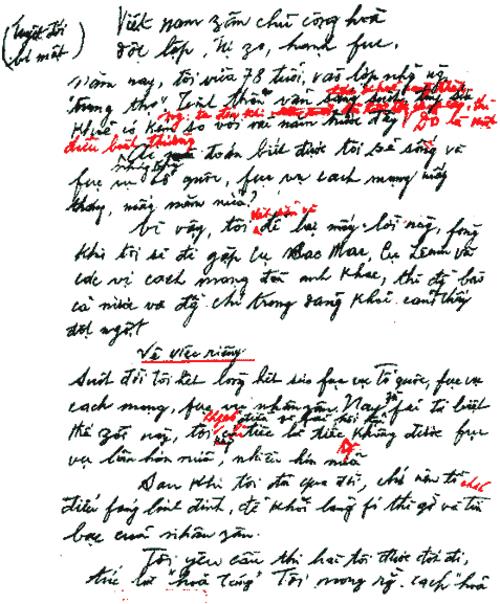 (Tuyệt đối
bí mật)
Việt nam zân chủ cộng hoà
độc lập, tự zo, hạnh fúc.
Năm nay, tôi vừa 78 tuổi, vào lớp những ng
"trung thọ". Tinh thần vẫn
khuẻ có kém so với vài năm trước đây. Đó là một
điều bình thường.
đoán biết được tôi sẽ sống và
fục vụ tổ quốc, fục vụ cách mạng mấy
tháng, mấy năm nữa?
Vì vậy, tôi để lại mấy lời này, fòng
khi tôi sẽ đi gặp cụ Các Mác, cụ Lênin và
các vị cách mạng đàn anh khác, thì đồng bào
cả nước và đồng chí trong đảng khỏi cảm thấy
đột ngột.
Về việc riêng:
Suốt đời tôi hết lòng hết sức fục vụ Tổ quốc, fục vụ
cách mạng, fục vụ nhân zân. Nay zù fải từ biệt
thế zới này, tôi chỉ tiếc là tiếc không được fục
vụ lâu hơn nữa, nhiều hơn nữa
Sau khi tôi đã qua đời, chớ nên tổ chức
điếu fúng linh đình, để khỏi lãng fí thì giờ và tiền
bạc của nhân zân.
Tôi yêu cầu thi hài tôi được đốt đi,
tức là "hoả táng" Tôi mong rằng cách "hoả